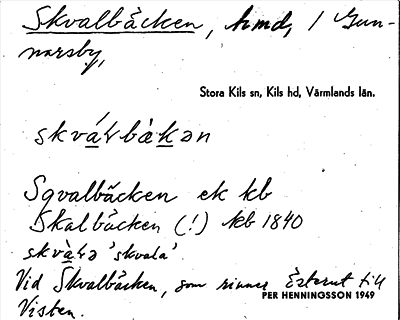 Skvalbäcken, hmd, i Gun-
narsby,
Stora Kils sn, Kils hd, Värmlands län.
skvárbàkən
Sqvalbäcken ek kb
Skalbäcken (!) kb 1840
skvàrə 'skvala'
Vid Skvalbäcken, som rinner österut till
PER HENNINGSSON 1949
Visten.